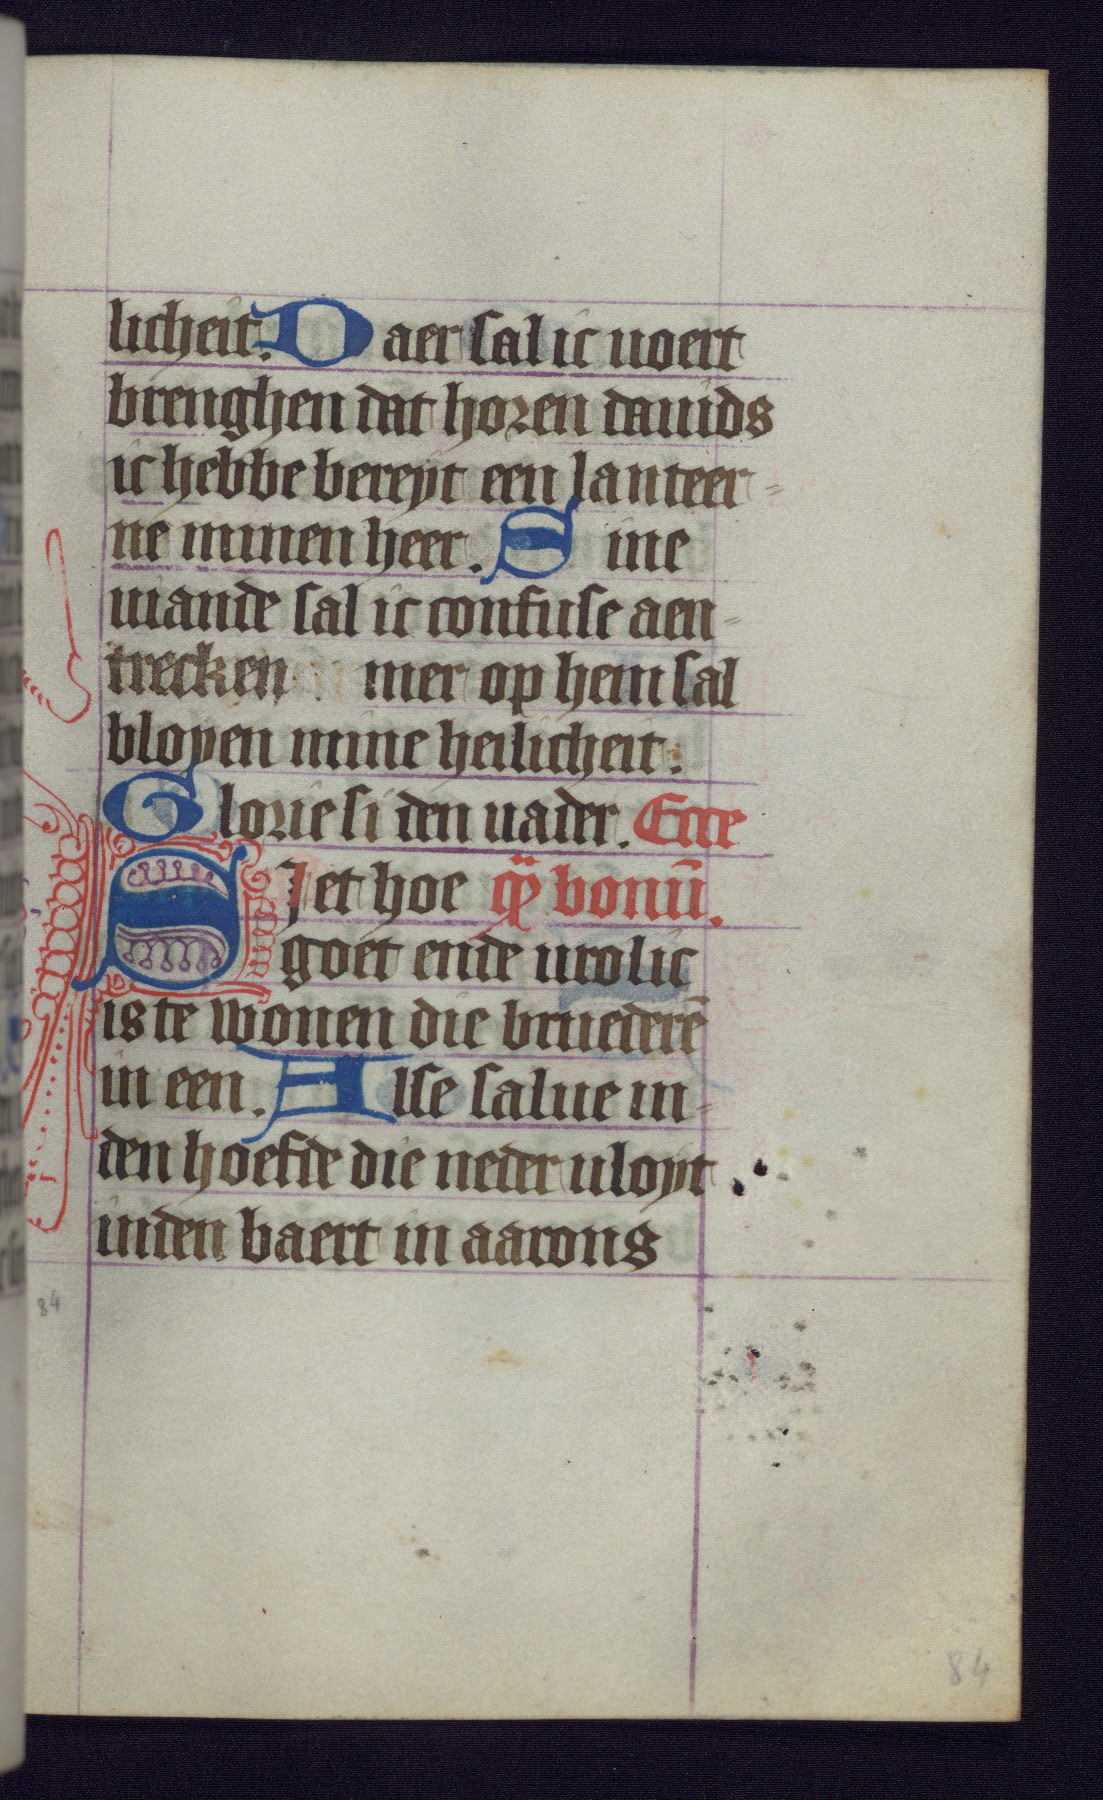 licheit. Daer sal ic uoert
brenghen dat horen dauids
ic hebbe bereyt een lanteer-
ne minen heer. Sine
uiande sal ic confuse aen-
trecken mer op hem sal
bloyen mine heilicheit.
Glorie si den uader. Ecce
SJet hoe q̈ bonū.
goet ende urolic
is te wonen die bruederē
in een. Alse salue in-
den hoefde die neder uloyt
inden baert in aarons
84
84